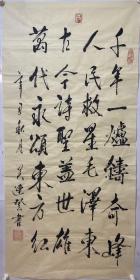 千年一爐鑄奇峰
人民救星毛澤東
古今詩聖蓋世雄
萬代永頌東方紅
秋月 連 書